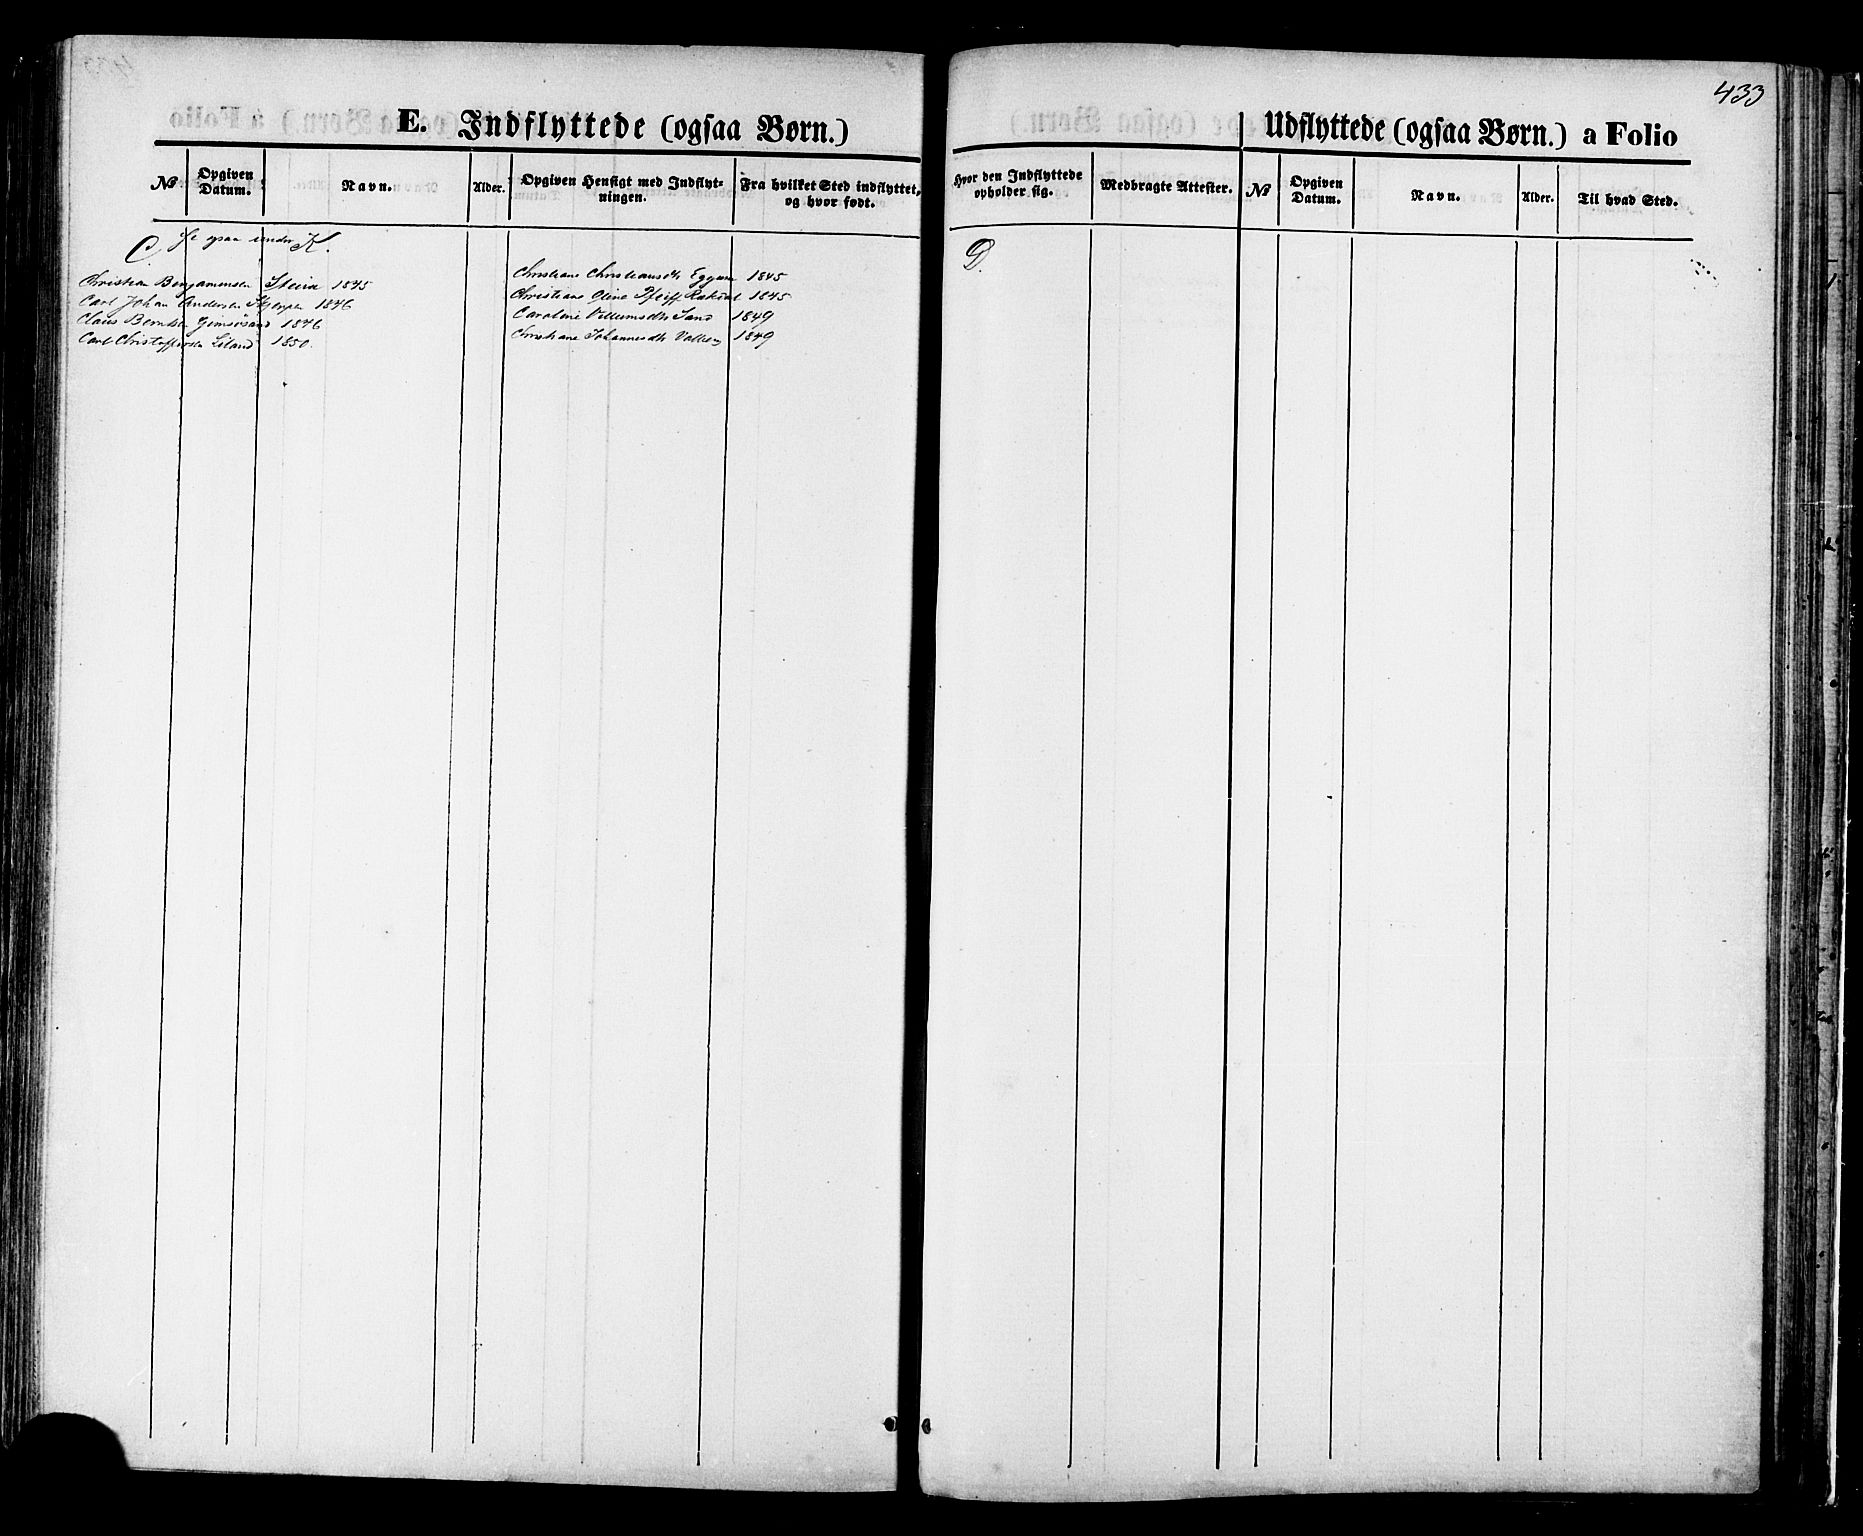 433
E. Indflyttede (ogsaa Børn.)
Udflyttede (ogsaa Børn.) a Folio
№ Opgiven Datum. Navn. Alder. Opgiven Hensigt med Indflyt-
ningen. Fra hvilket Sted indflyttet,
og hvor født.
Hvor den Indflyttede
opholder sig. Medbragte Attester. № Opgiven
Datum. Navn. Alder. Til hvad Sted.
C Se ogsaa under K.
Christian Benjaminsen Steira 1845
Carl Johan Andersen Skjerpen 1846
Claus Berntsen Gimsøsand 1846
Carl Christoffersen Liland 1850.
Christiane Christiansdtr Eggum 1845
Christiane Oline Pfeiff Rakdal 1845
Caroline Villumsdtr Sand 1849
Christiane Johannesdtr 1849
D.